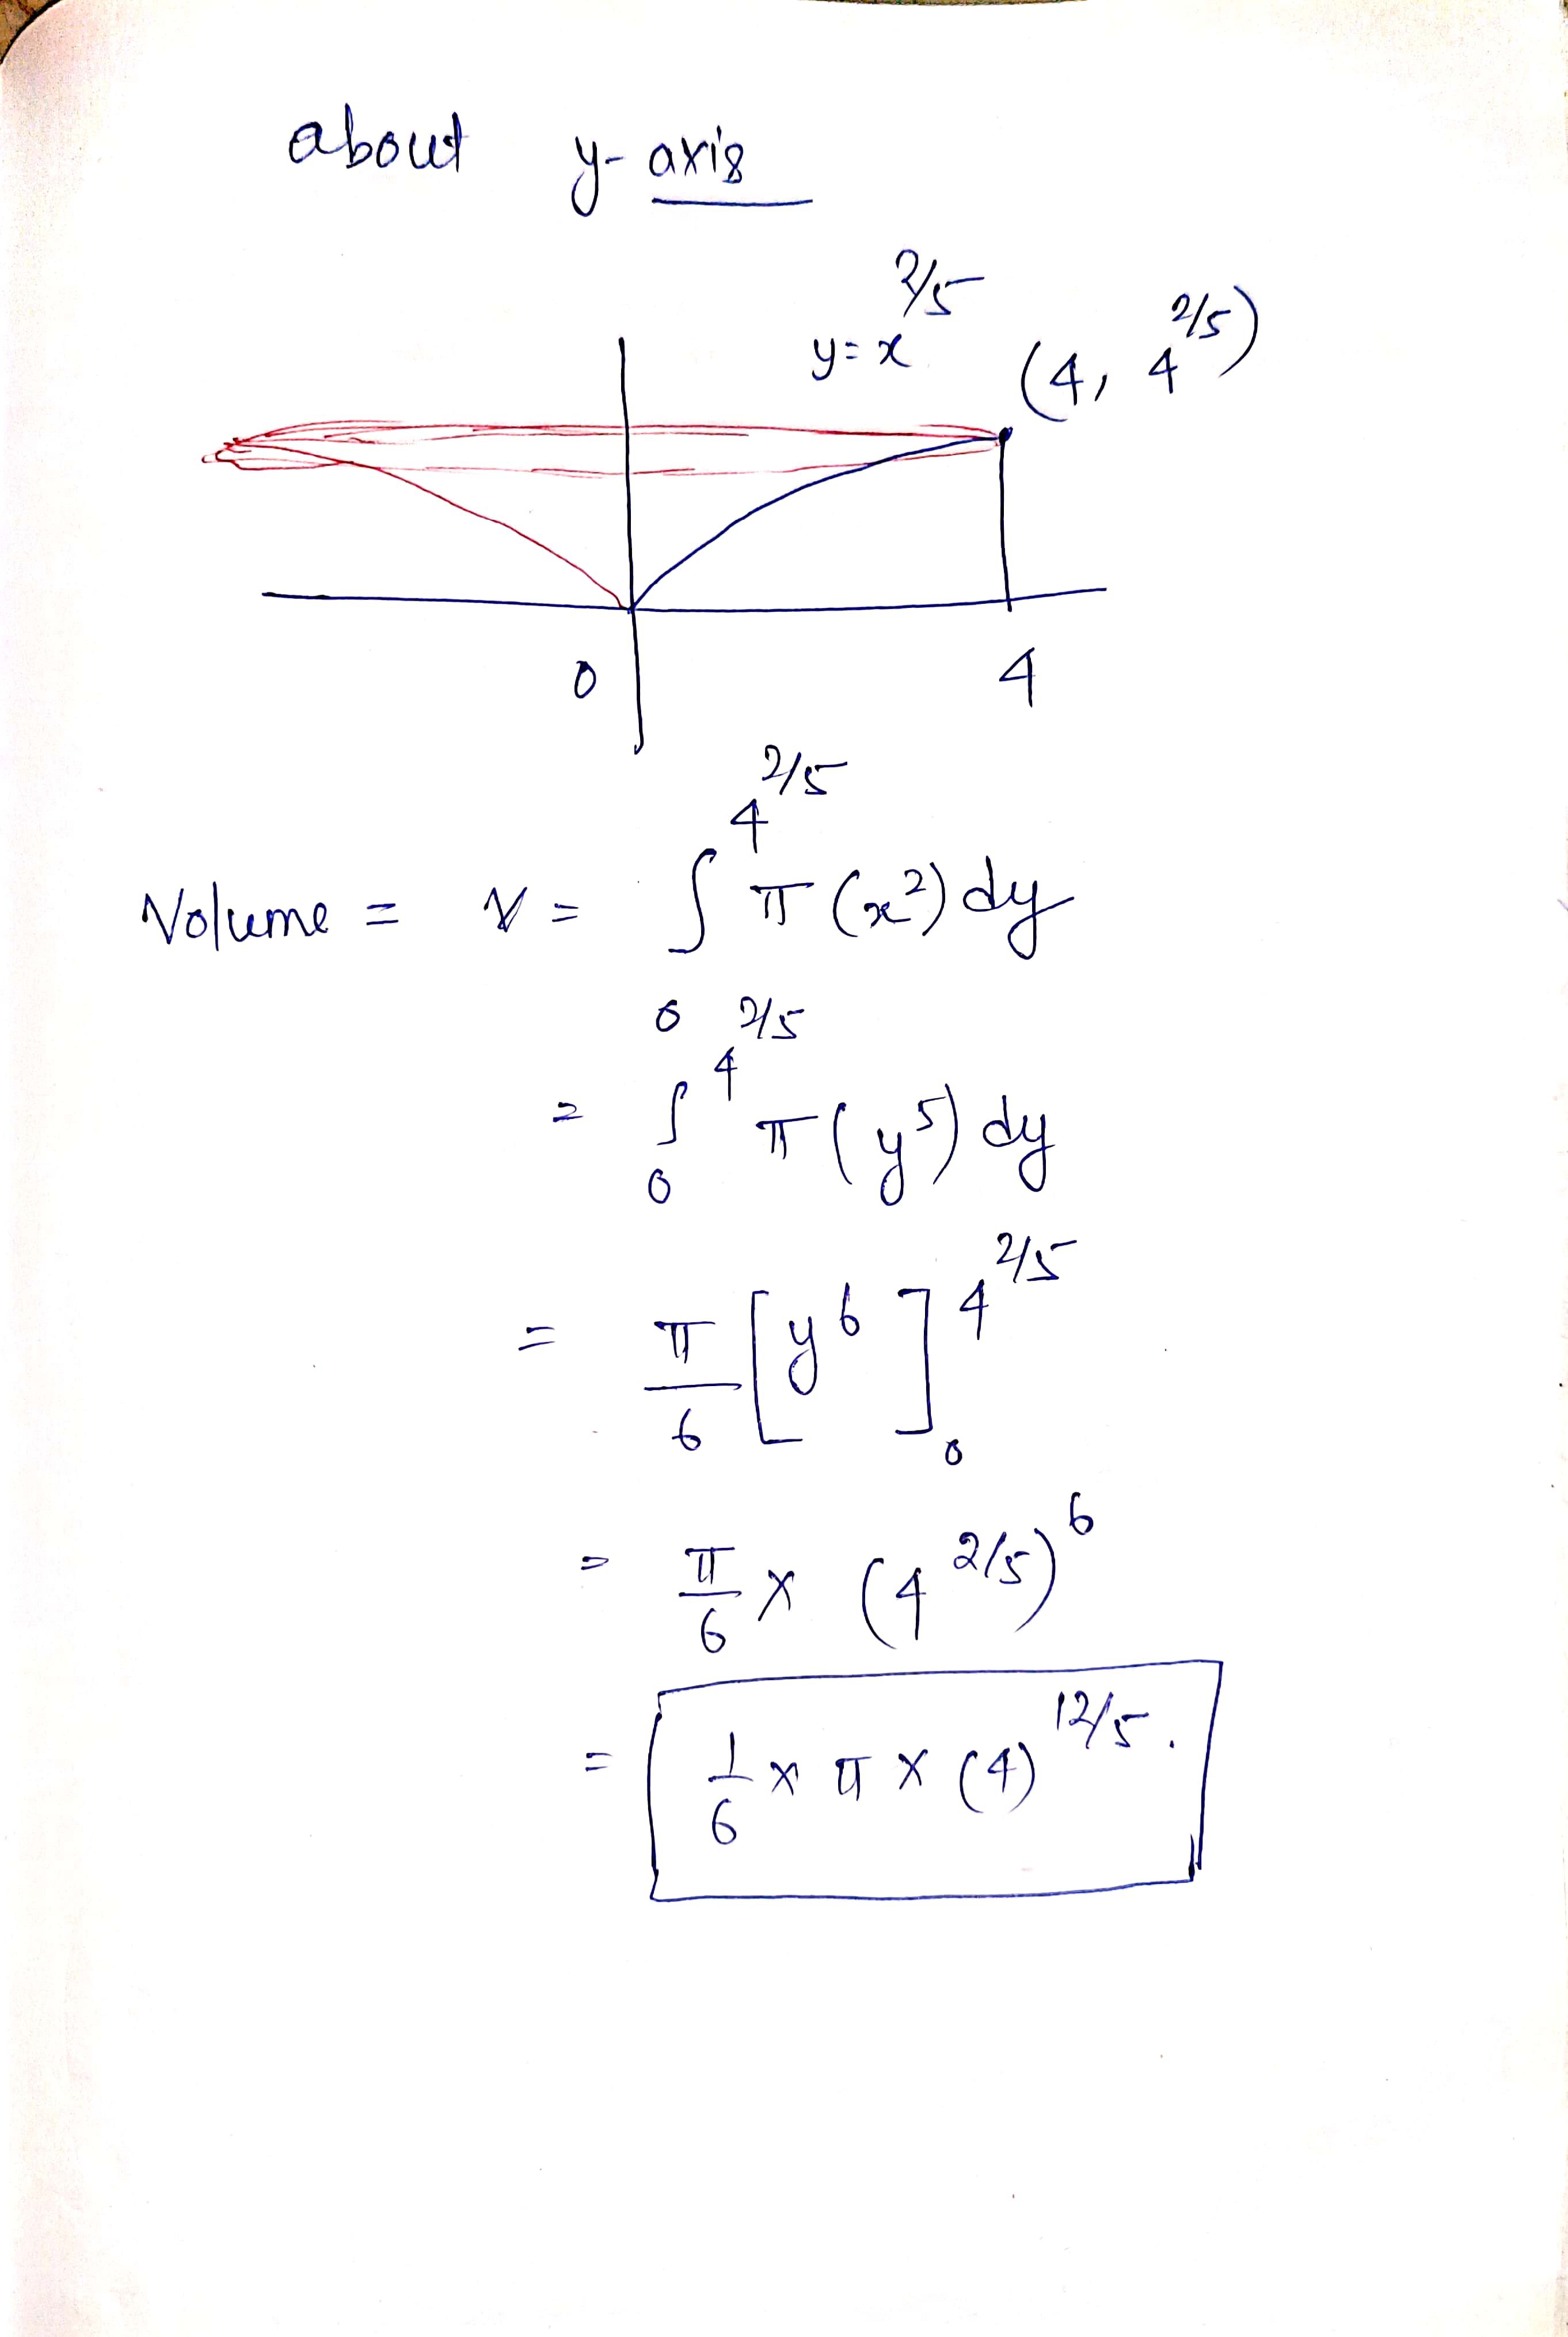 about y-axis
y=x^{2/5}
(4, 4^{2/5})
0 4
Volume = V = ∫_0^{4^{2/5}} π (x²) dy
= ∫_0^{4^{2/5}} π (y⁵) dy
= π/6 [y⁶]_0^{4^{2/5}}
= π/6 × (4^{2/5})⁶
= 1/6 × π × (4)^{12/5}.